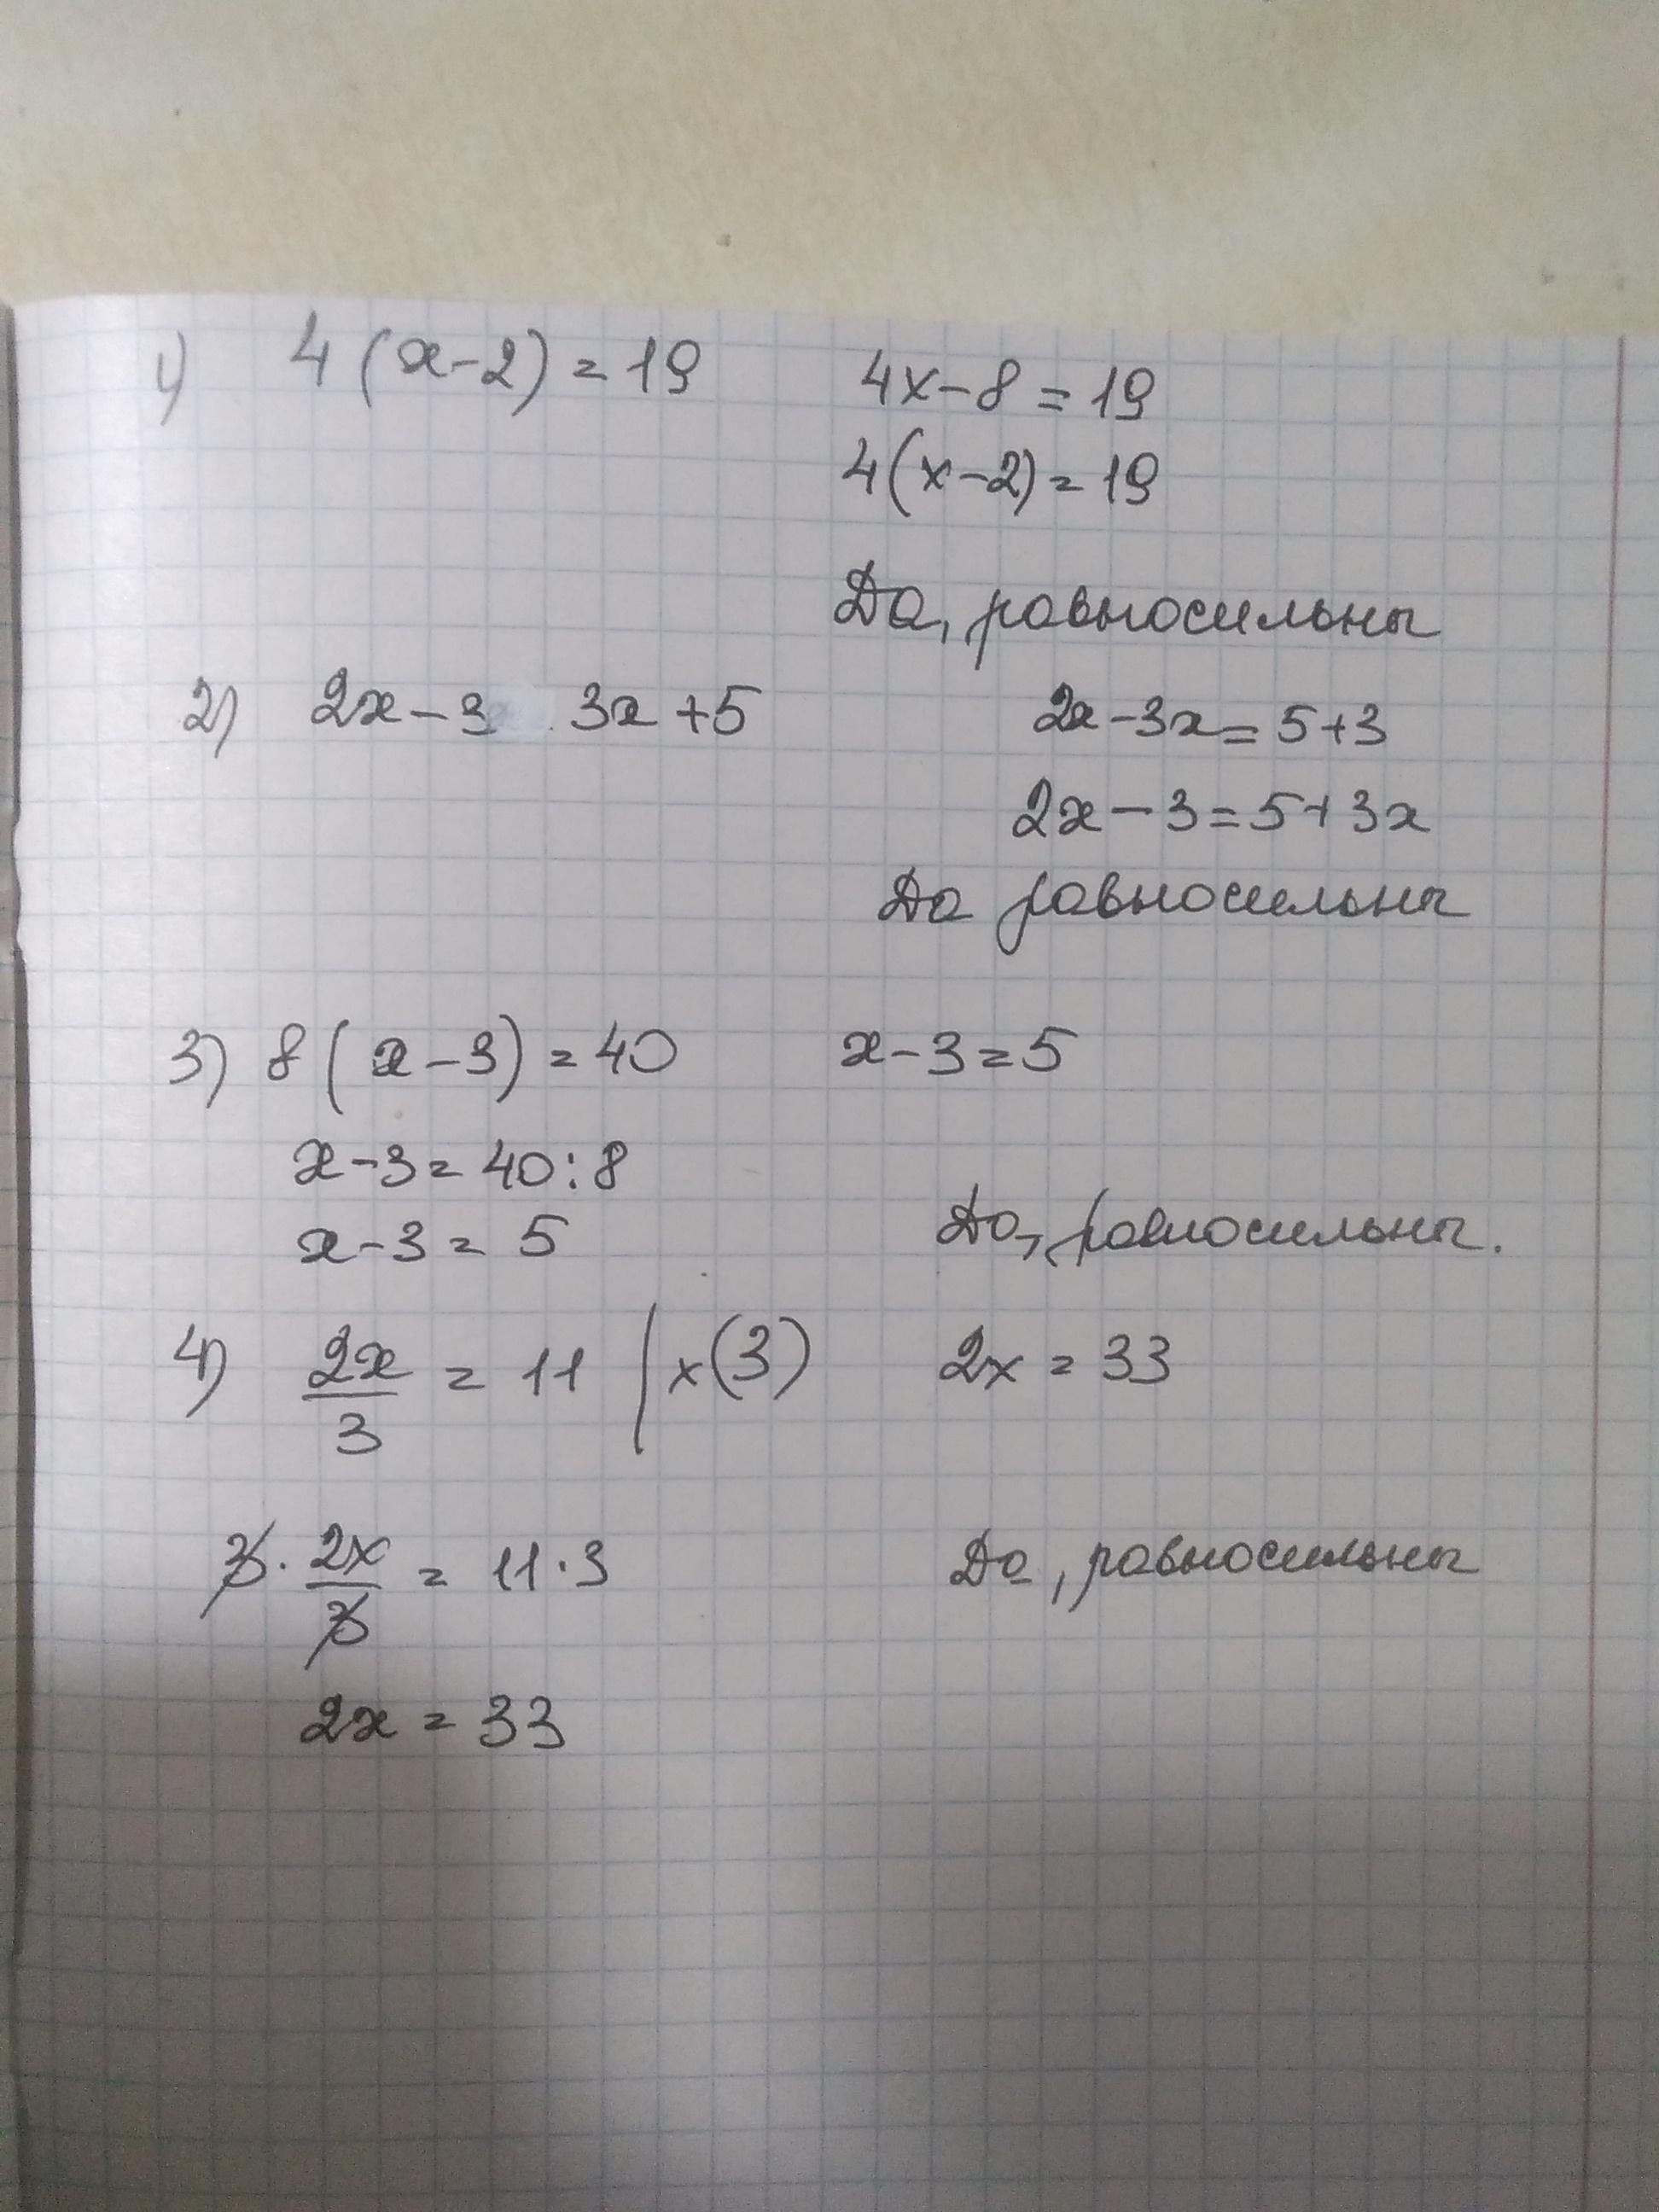 1) 4(x-2)=19 4x-8=19
4(x-2)=19
Да, равносильны
2) 2x-3 3x+5 2x-3x=5+3
2x-3=5+3x
Да равносильны
3) 8(x-3)=40 x-3=5
x-3=40:8
x-3=5 Да, равносильны.
4) 2x/3 = 11 | x(3) 2x=33
3·2x/3 = 11·3 Да, равносильны
2x=33